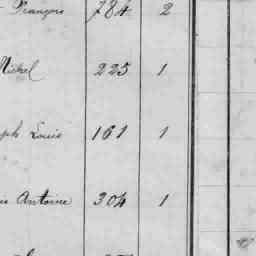 François 784 2
Michel 225 1
ph Louis 161 1
Antoine 304 1